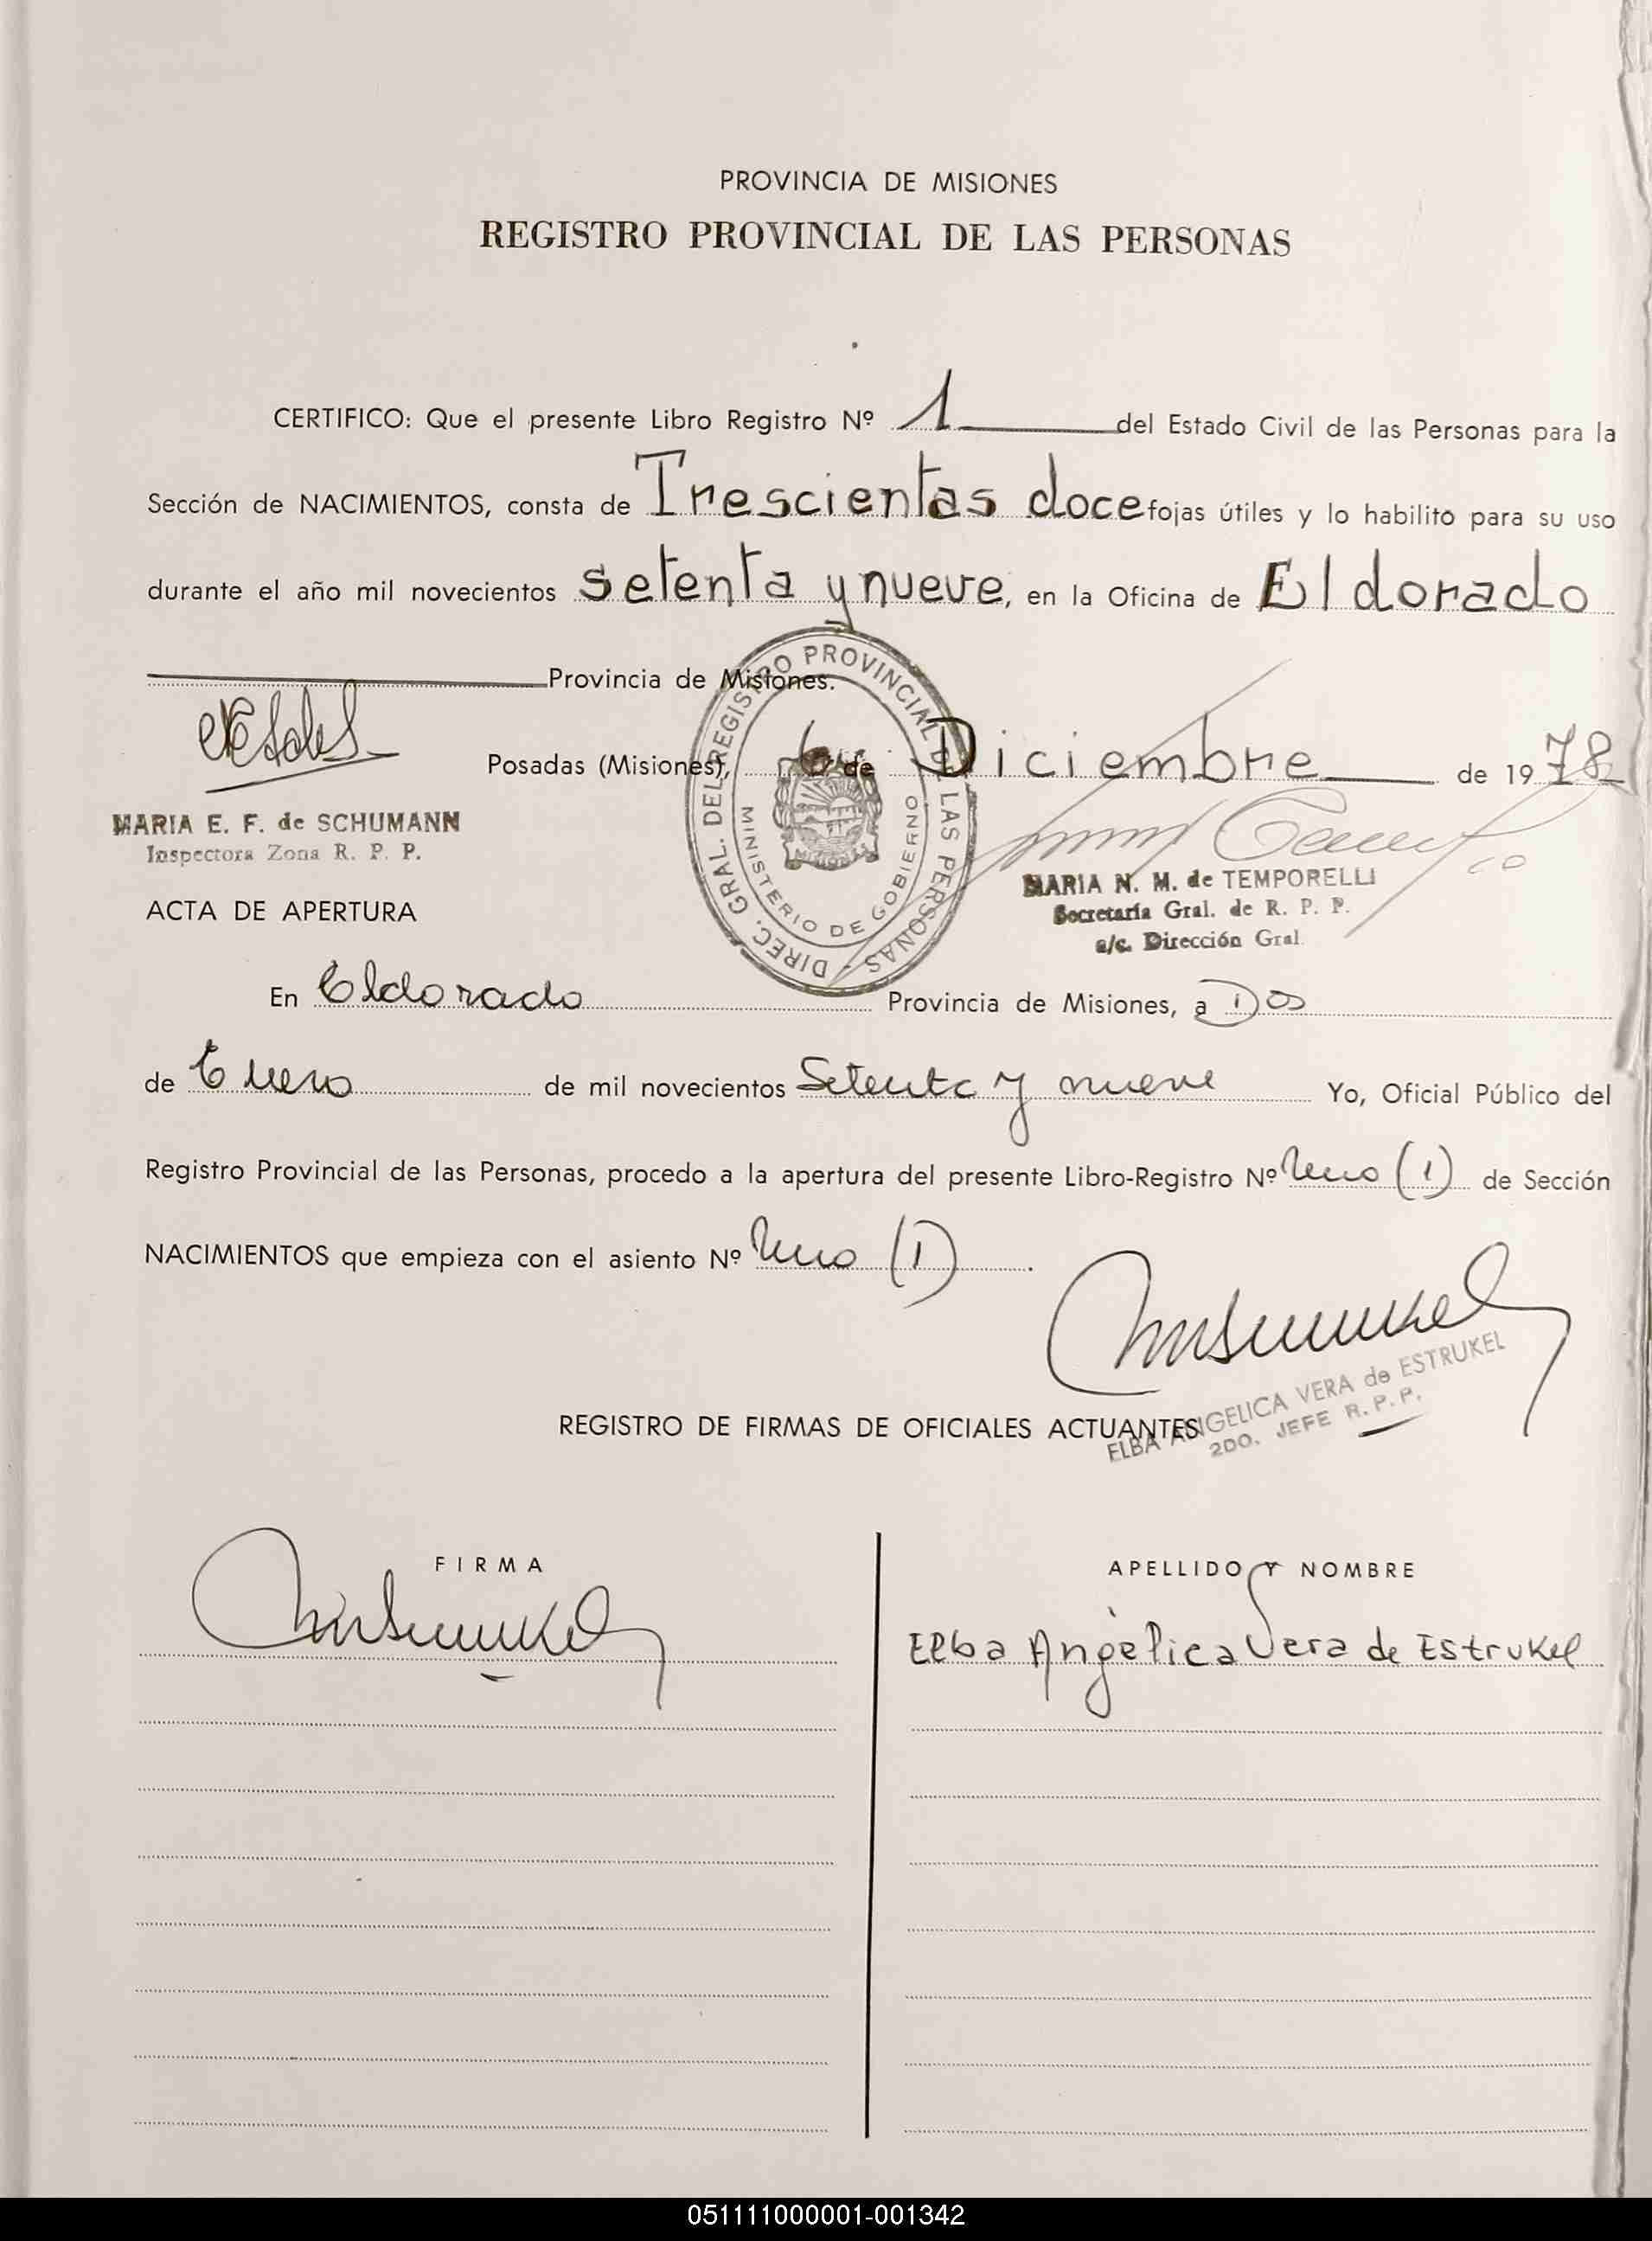 PROVINCIA DE MISIONES
REGISTRO PROVINCIAL DE LAS PERSONAS
CERTIFICO: Que el presente Libro Registro Nº 1 del Estado Civil de las Personas para la
Sección de NACIMIENTOS, consta de Trescientas doce fojas útiles y lo habilito para su uso
durante el año mil novecientos setenta y nueve, en la Oficina de Eldorado
Provincia de Misiones.
DIREC. GRAL. DEL REGISTRO PROVINCIAL DE LAS PERSONAS -
MINISTERIO DE GOBIERNO
MISIONES
Posadas (Misiones), 6 de Diciembre de 1978
MARIA E. F. de SCHUMANN
Inspectora Zona R. P. P.
MARIA N. M. de TEMPORELLI
Secretaría Gral. de R. P. P.
a/c. Dirección Gral.
ACTA DE APERTURA
En Eldorado Provincia de Misiones, a Dos
de Enero de mil novecientos Setenta y nueve Yo, Oficial Público del
Registro Provincial de las Personas, procedo a la apertura del presente Libro-Registro Nº Uno (1) de Sección
NACIMIENTOS que empieza con el asiento Nº Uno (1).
ELBA ANGELICA VERA de ESTRUKEL
2DO. JEFE R.P.P.
REGISTRO DE FIRMAS DE OFICIALES ACTUANTES
FIRMA
APELLIDO Y NOMBRE
Elba Angèlica Vera de Estrukel
051111000001-001342